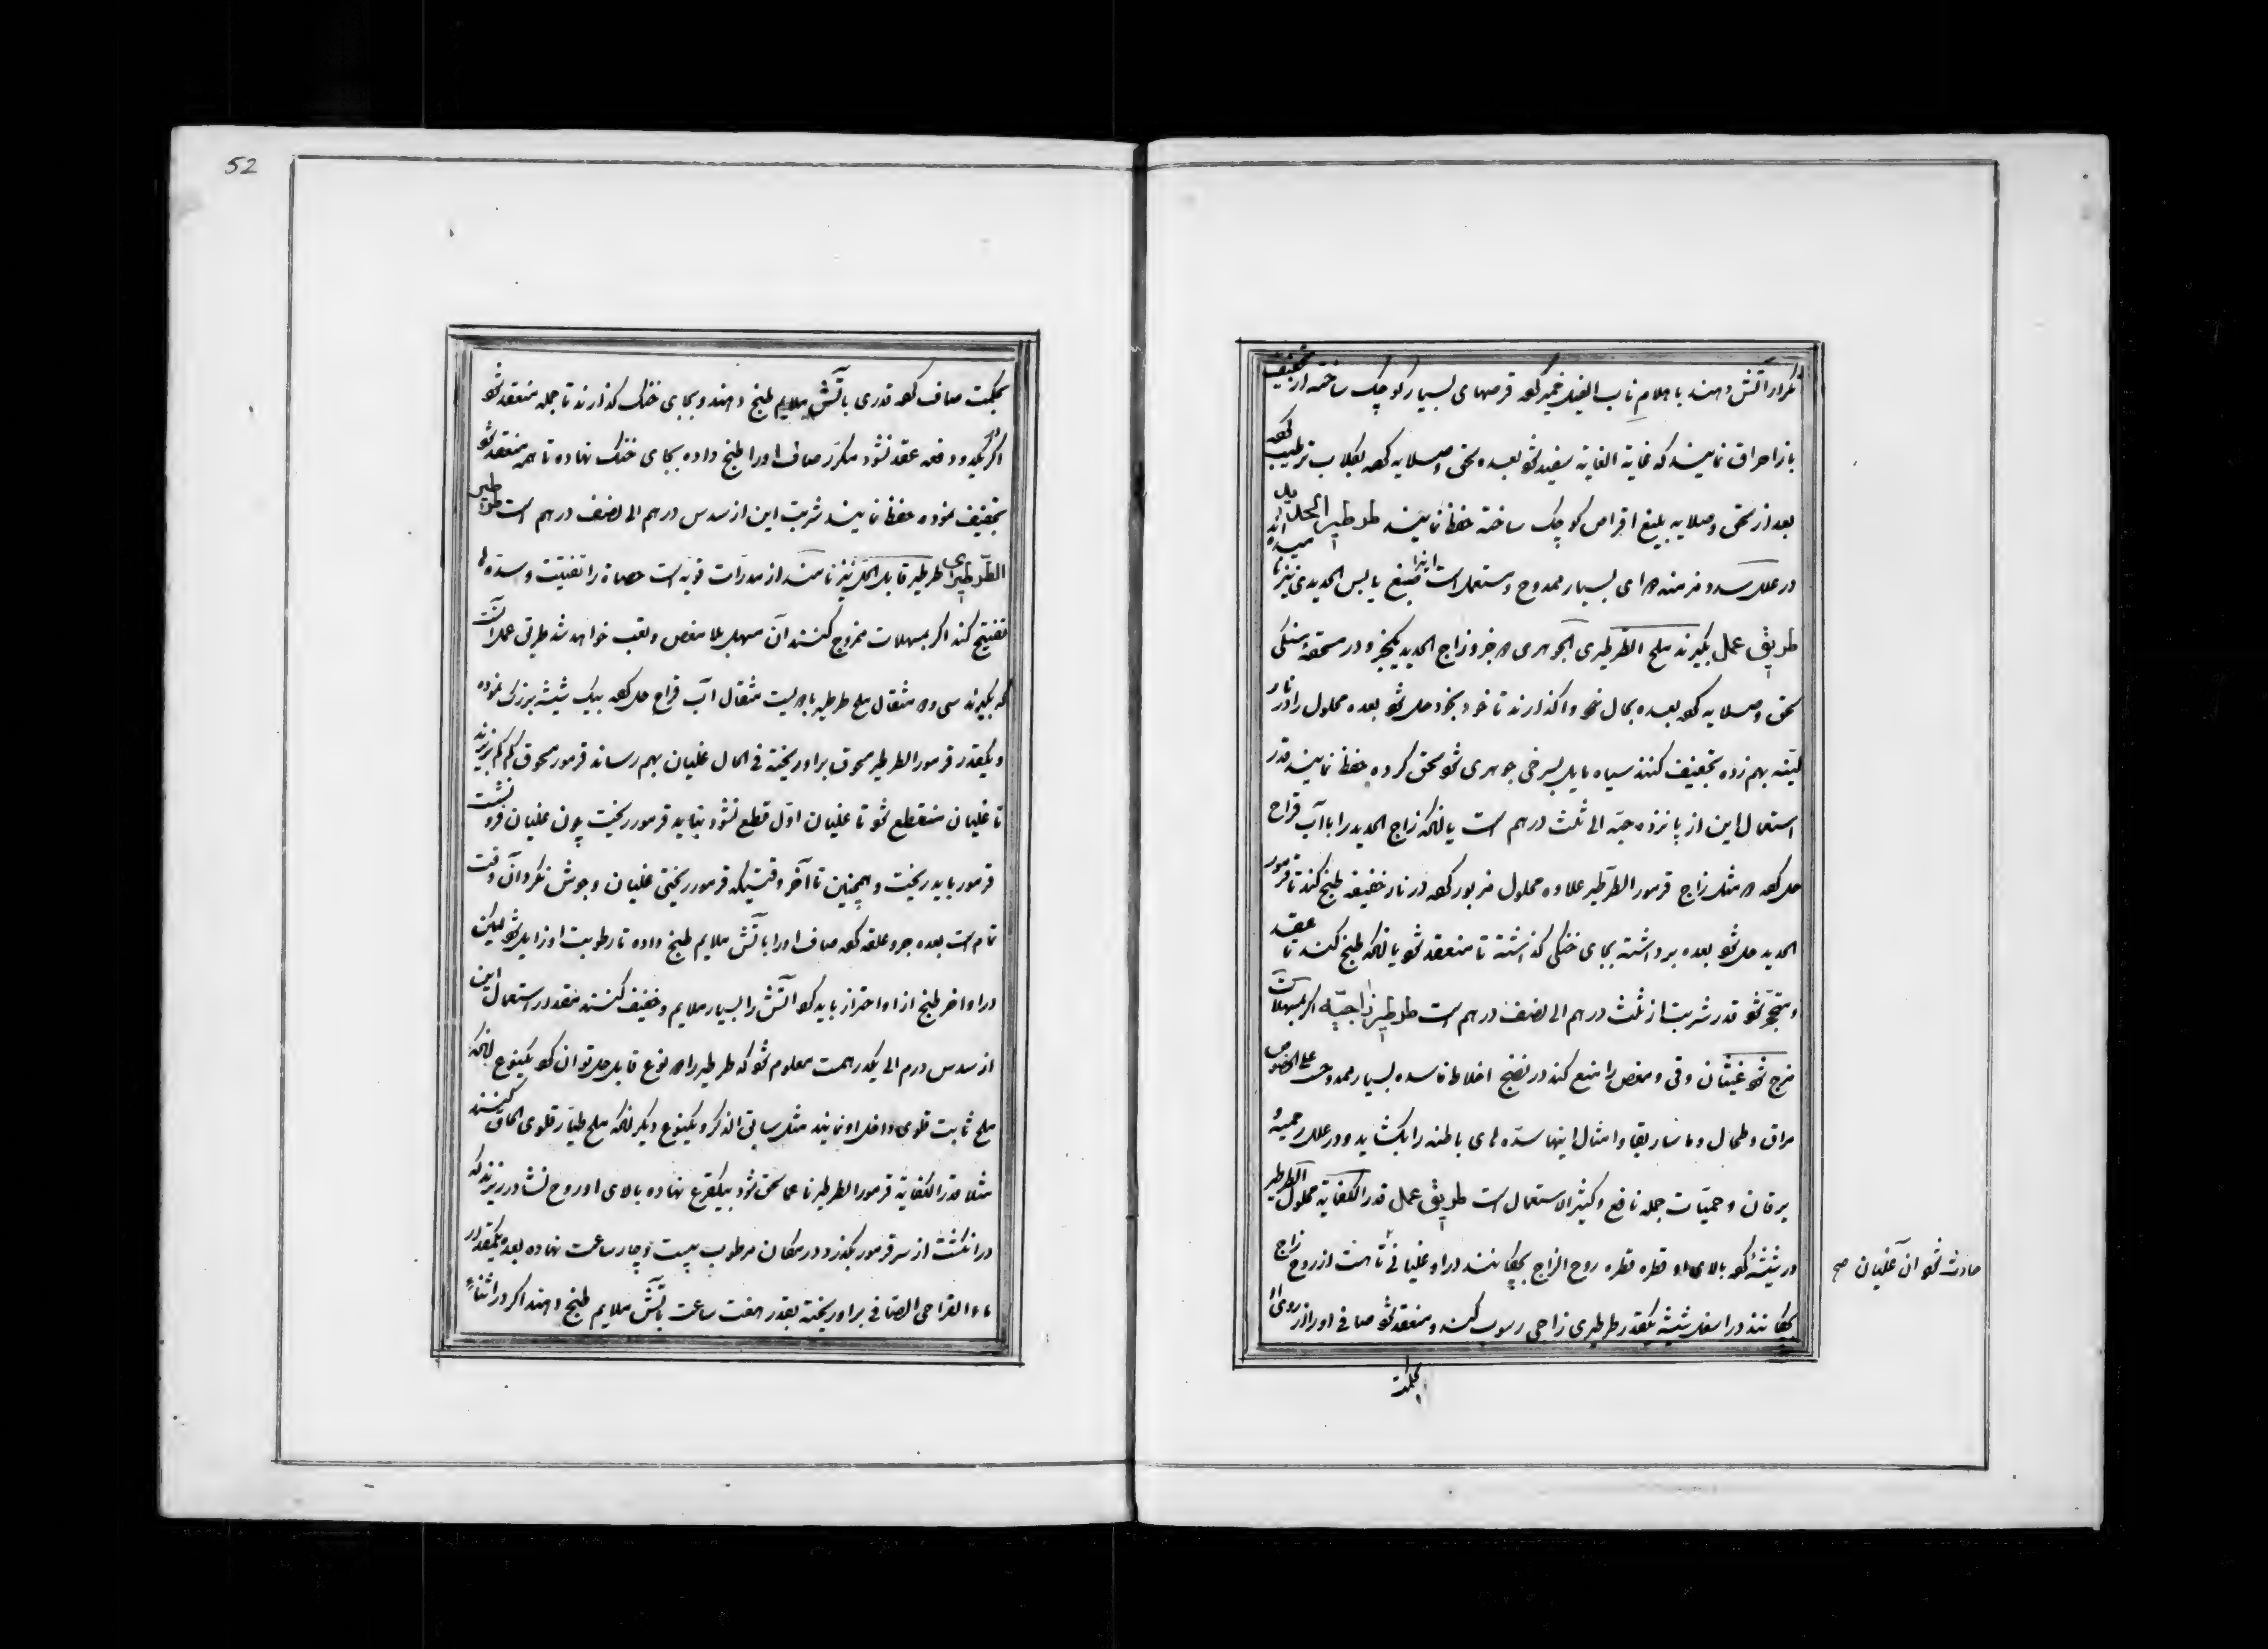 تکرار آتش دهند باهلام ناب الفیل خمیر کرده قرصهای بسیار کوچک ساخته از تخفیف
باز احراق نمایند که غایة الغایه سفید شود بعده سحق وصلایه کرده بکلاب ترطیب کرده
بعد از سحق وصلایه بلیغ اقراص کوچک ساخته حفظ نمایند طرطیر
در علل سدد مزمنه دوای بسیار ممدوح ومستعمل است اینرا صبغ یابس الحدیدی نیز
طریق عمل بکیرند ملح الطرطیری الجوهری دو جزو زاج الحدید یکجزو در مسحقهٔ سنکی
سحق وصلایه کرده بعده بحال خود واکذارند تا خود بخود حل شود بعده محلول را در نار
لینه بهم زده تجفیف کنند سیاه مایل بسرخی جوهری شود سحق کرده حفظ نمایند قدر
استعمال این از پانزده حبه الی ثلث درهم است یا آنکه زاج الحدید را با آب قراح
حل کرده دو مثل زاج قرمور الطرطیر علاوه محلول مزبور کرده در نار خفیفه طبخ کند تا قرمور
الحدید حل شود بعده برداشته بجای خنکی کذاشته تا منعقد شود یا آنکه طبخ کنند تا عقد
ومتحجر شود قدر شربت از ثلث درهم الی نصف درهم است طرطیر زاجیه اکر بمسهلات
مزج شود غثیان وقی ومغص را منع کند در نضج اخلاط فاسده بسیار ممدوحست علی الخصوص
مراق وطحال وماساریقا وامثال اینها سده های باطنه را بکشاید ودر علل رحمیه و
یرقان وحمیات جمله نافع وکثیر الاستعمال است طریق عمل قدر الکفایه محلول الطرطیر
در شیشه کرده بالای او قطره قطره روح الزاج بچکانند در او غلیانی تا هست از روح زاج
بچکانند در اسفل شیشه یکقدر طرطیری زاجی رسوب کند ومنعقد شود صافی او را از روی او
حادث شود آن غلیان صح
بحکمت
52
بحکمت صاف کرده قدری بآتش ملایم طبخ دهند وبجای خنک کذارند تا جمله منعقد شود
اکر بیکدو دفعه عقد نشود مکرر صاف او را طبخ داده بجای خنک نهاده تا همه منعقد شود
تجفیف نموده حفظ نمایند شربت این از سدس درهم الی نصف درهم است طرطیر
الطرطیرای طرطیر قابل الحل نیز نامند از مدرات قویه است حصاة را تفتیت وسده ها
تفتیح کند اکر بمسهلات ممزوج کنند آن مسهل بلا مغص وتعب خواهد شد طریق عمل آنست
که بکیرند سی ودو مثقال ملح طرطیر با دویست مثقال آب قراح حل کرده بیک شیشه بزرک نموده
ویکقدر قرمور الطرطیر مسحوق بر او ریخته فی الحال غلیان بهم رساند قرمور مسحوق کم کم بریزند
تا غلیان منقطع شود تا غلیان اول قطع نشود نباید قرمور ریخت چون غلیان فرو نشست
قرمور باید ریخت وهمچنین تا آخر وقتیکه قرمور ریختی غلیان وجوش نکرد آن وقت
تمام است بعده جر وعلقه کرده صاف او را بآتش ملایم طبخ داده تا رطوبت او زایل شود لیکن
در اواخر طبخ از او احتراز باید کرد آتش را بسیار ملایم وخفیف کنند مقدار استعمال این
از سدس درم الی یکدرهمست معلوم شود که طرطیر را دو نوع قابل حل توان کرد یکنوع آنکه
ملح ثابت قلوی داخل او نمایند مثل سابق الذکر ویکنوع دیکر آنکه ملح طیار قلوی الحاق کنند
مثلا قدر الکفایه قرمور الطرطیر ناعما سحق شود بیکقرع نهاده بالای او روح نشادر ریزند که
دو انکشت از سر قرمور بکذرد در مکان مرطوب بیست وچار ساعت نهاده بعده یکقدر
ماء القراحی الصافی بر او ریخته بقدر هفت ساعت بآتش ملایم طبخ دهند اکر در اثناء